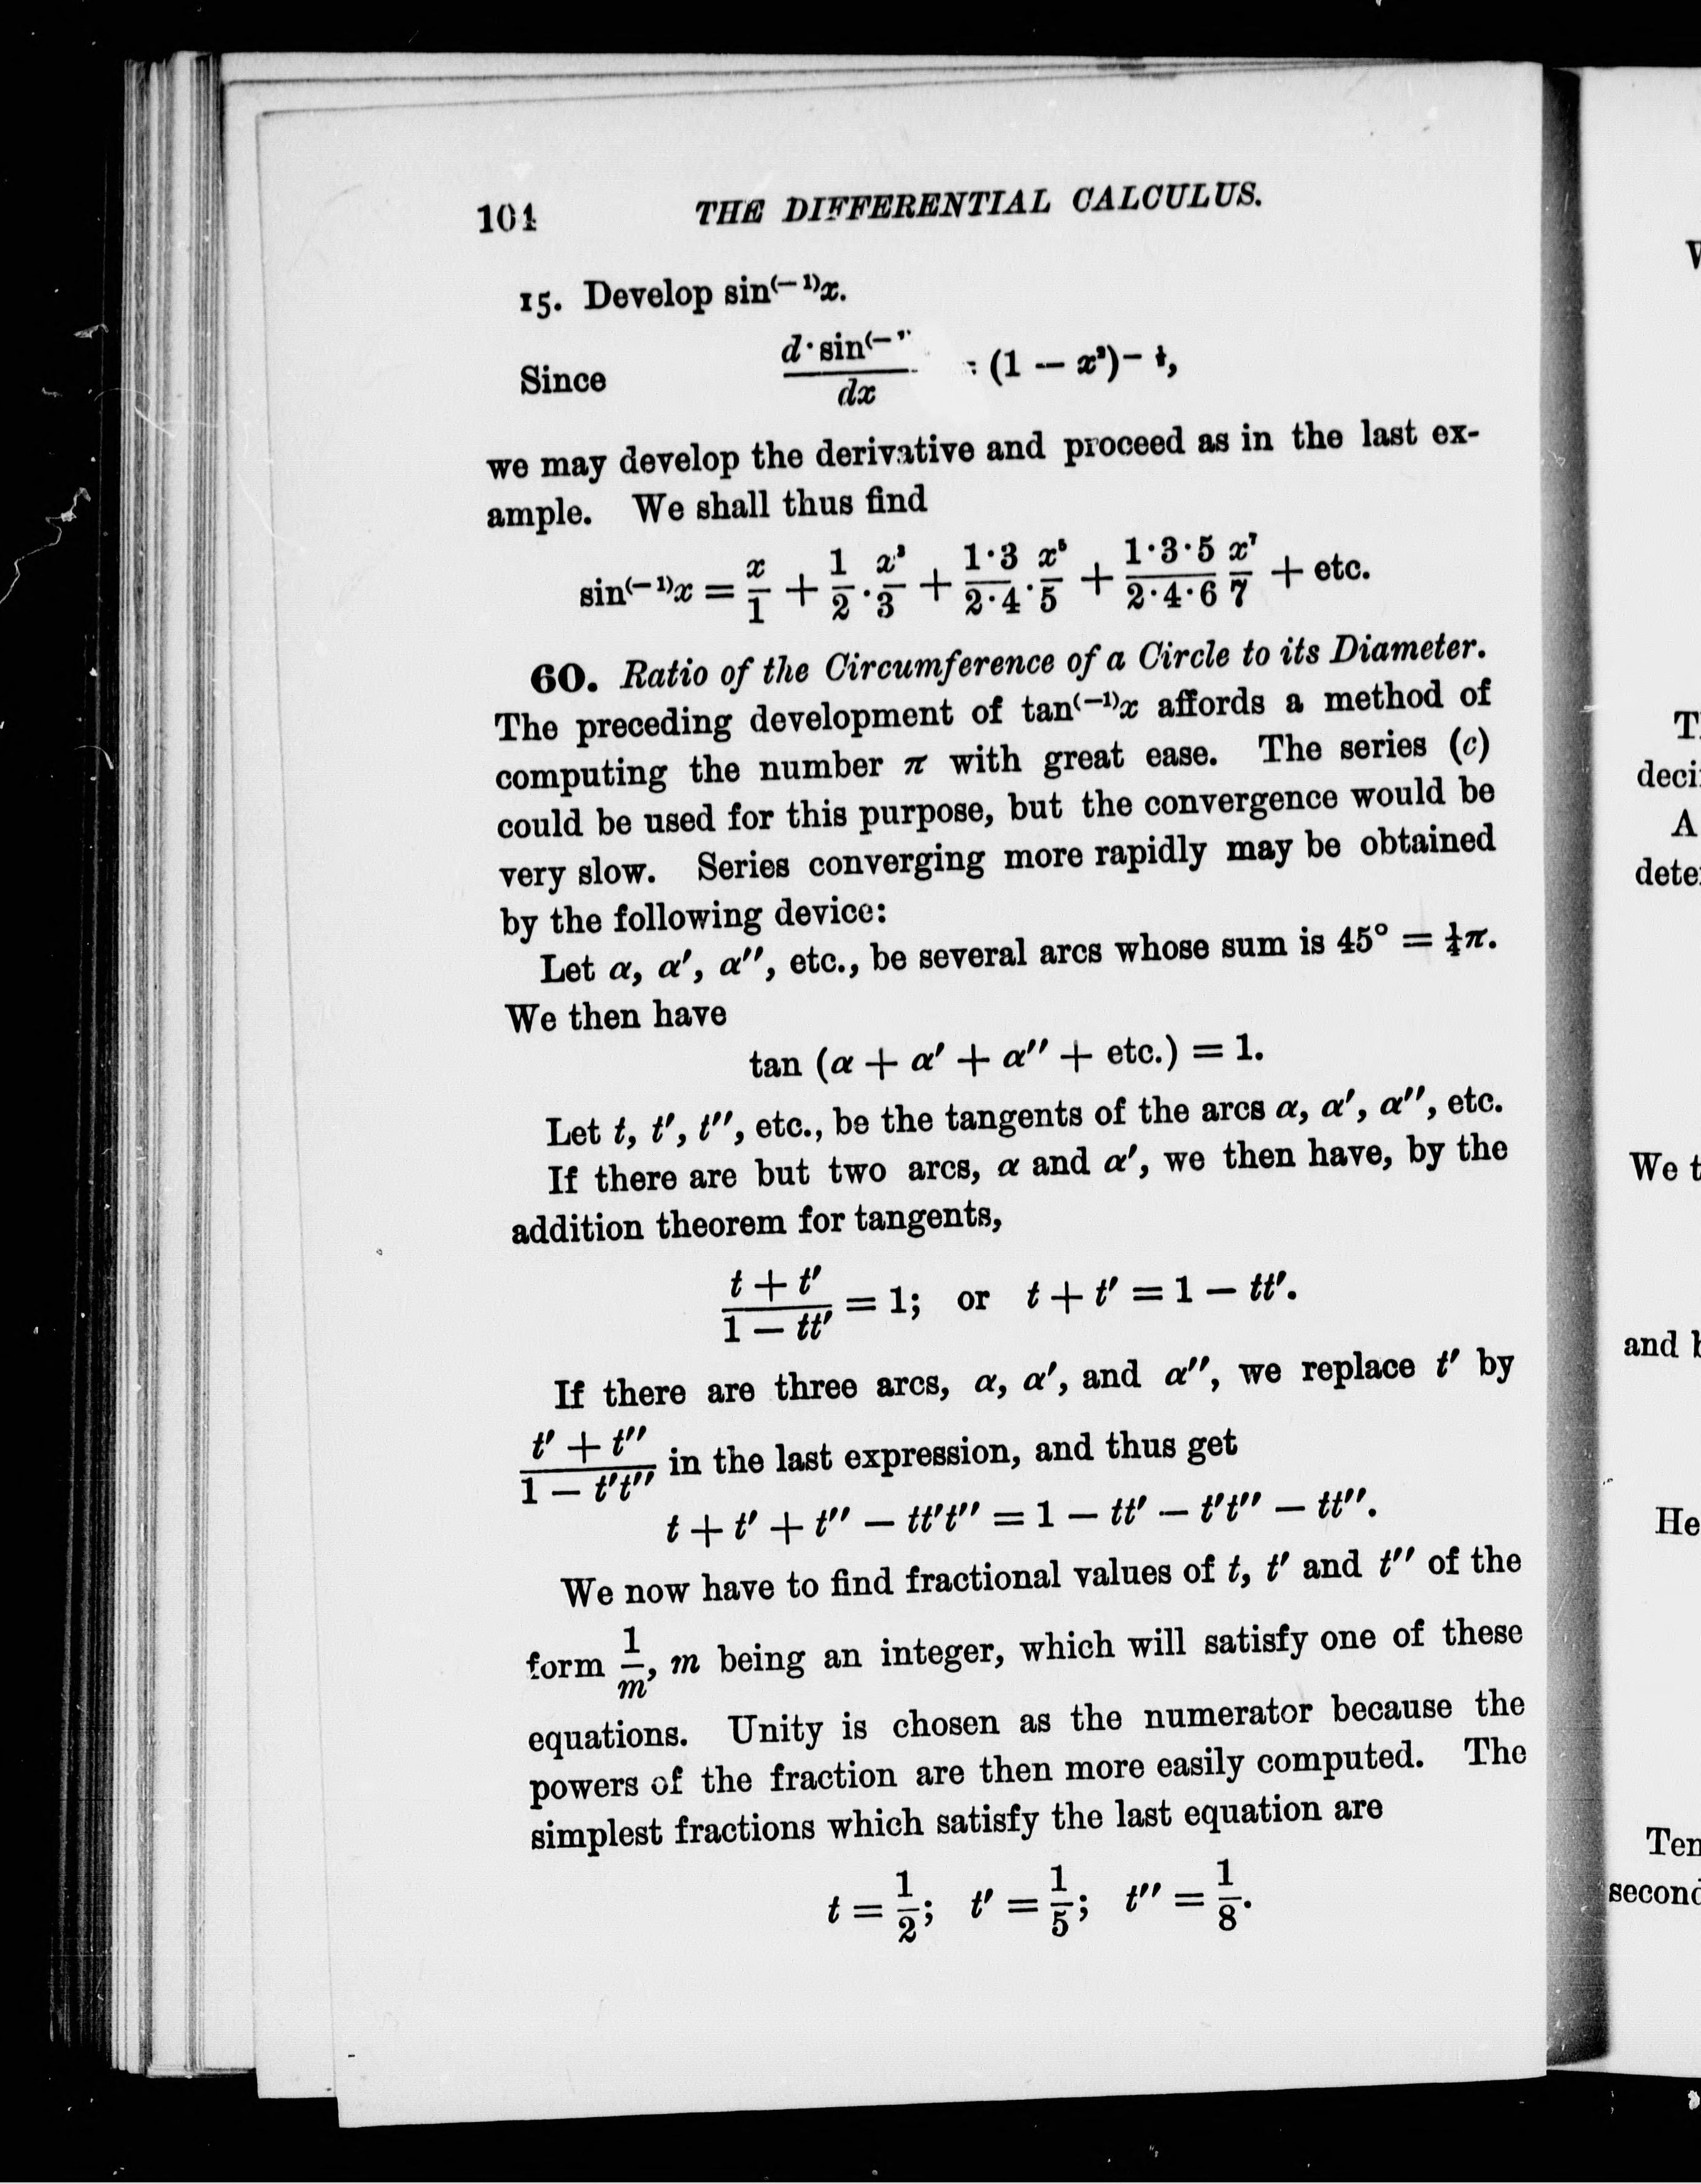 104 THE DIFFERENTIAL CALCULUS.
15. Develop sin⁽⁻¹⁾x.
Since d·sin⁽⁻ / dx = (1 − x²)^−½,
we may develop the derivative and proceed as in the last ex-
ample. We shall thus find
sin⁽⁻¹⁾x = x/1 + 1/2 · x³/3 + 1·3/2·4 · x⁵/5 + 1·3·5/2·4·6 x⁷/7 + etc.
60. Ratio of the Circumference of a Circle to its Diameter.
The preceding development of tan⁽⁻¹⁾x affords a method of
computing the number π with great ease. The series (c)
could be used for this purpose, but the convergence would be
very slow. Series converging more rapidly may be obtained
by the following device:
Let α, α′, α″, etc., be several arcs whose sum is 45° = ¼π.
We then have
tan (α + α′ + α″ + etc.) = 1.
Let t, t′, t″, etc., be the tangents of the arcs α, α′, α″, etc.
If there are but two arcs, α and α′, we then have, by the
addition theorem for tangents,
t + t′ / 1 − tt′ = 1; or t + t′ = 1 − tt′.
If there are three arcs, α, α′, and α″, we replace t′ by
t′ + t″ / 1 − t′t″ in the last expression, and thus get
t + t′ + t″ − tt′t″ = 1 − tt′ − t′t″ − tt″.
We now have to find fractional values of t, t′ and t″ of the
form 1/m, m being an integer, which will satisfy one of these
equations. Unity is chosen as the numerator because the
powers of the fraction are then more easily computed. The
simplest fractions which satisfy the last equation are
t = 1/2; t′ = 1/5; t″ = 1/8.
deci
A
dete
We t
and
He
Ten
second